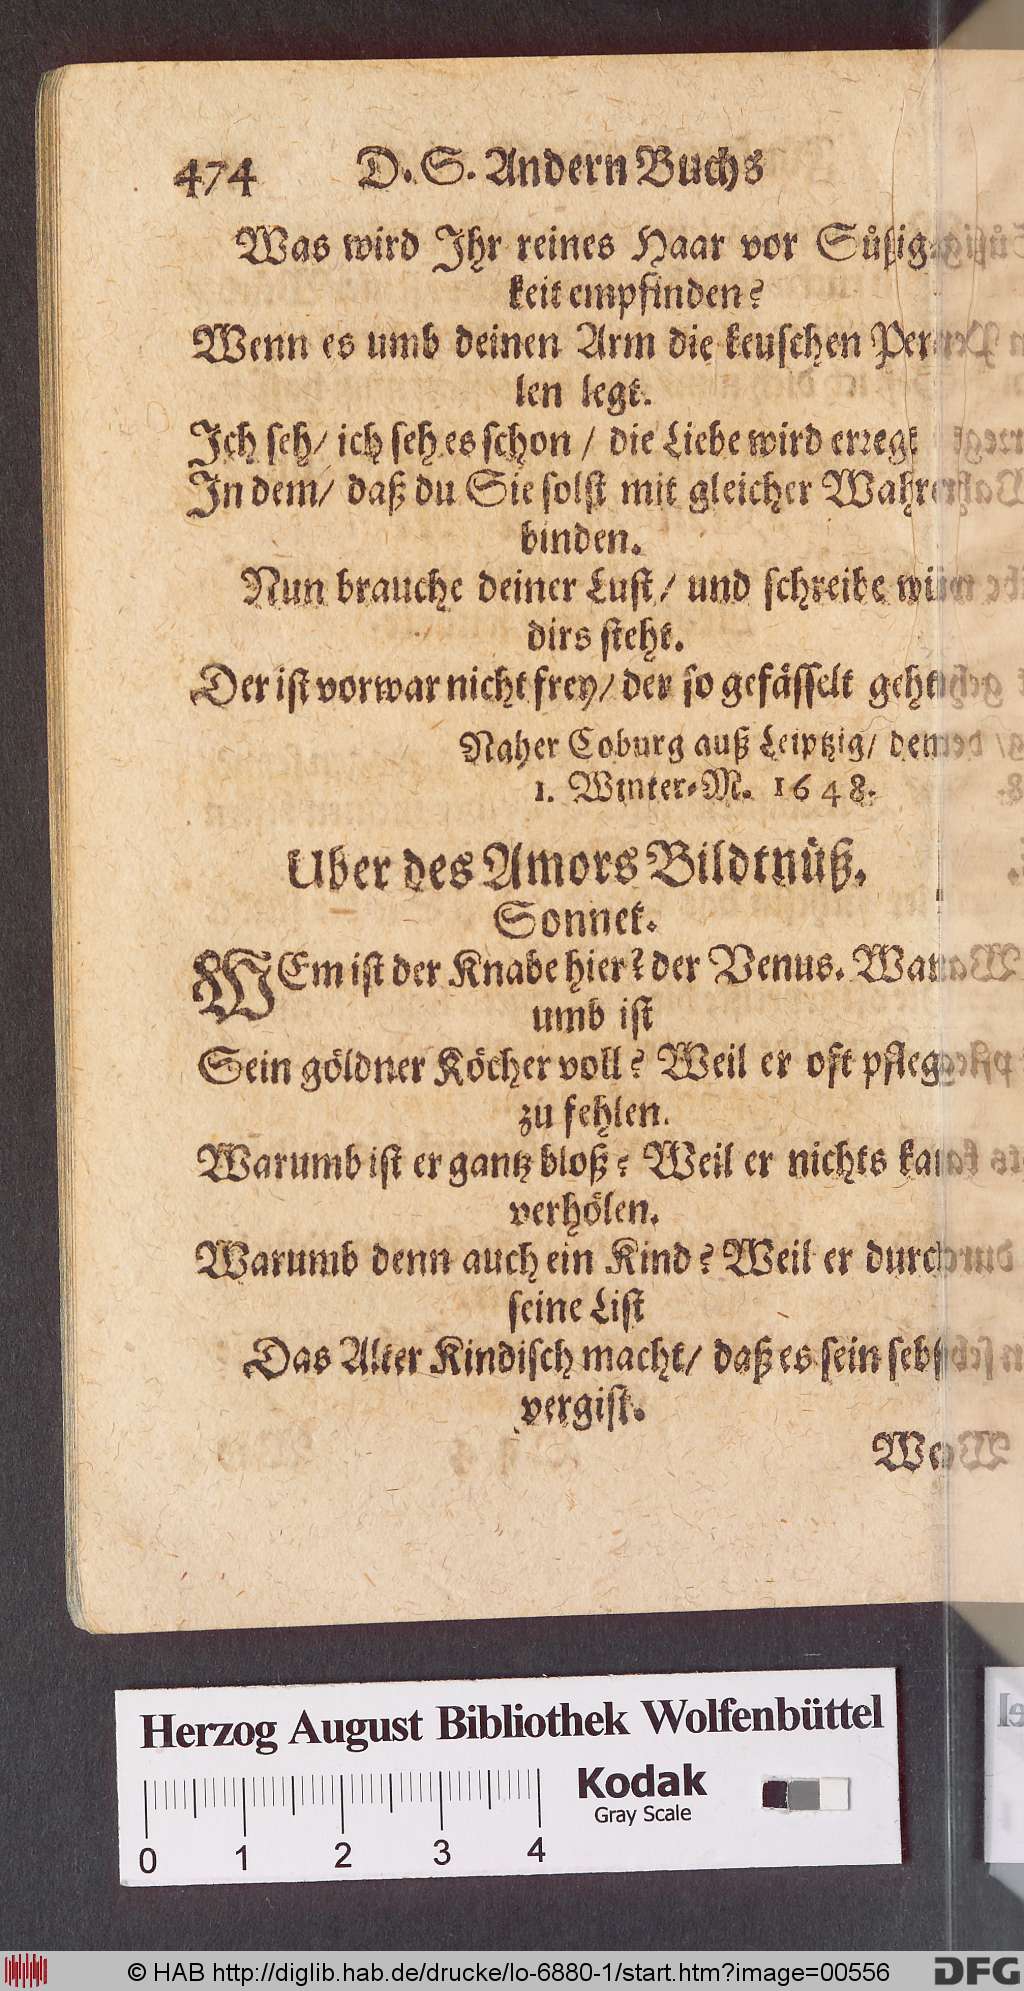 474 D. S. Andern Buchs
Was wird Ihr reines Haar vor Süßig-
keit empfinden?
Wenn es umb deinen Arm die keuschen Per-
len legt.
Ich seh/ ich seh es schon / die Liebe wird erregt
In dem/ daß du Sie solst mit gleicher Wahr
binden.
Nun brauche deiner Lust/ und schreibe wü
dirs steht.
Der ist vorwar nicht frey/ der so gefässelt geht
Naher Coburg auß Leiptzig/ den
1. Winter-M. 1648.
Uber des Amors Bildtnüß.
Sonnet.
WEm ist der Knabe hier? der Venus. War-
umb ist
Sein göldner Köcher voll? Weil er oft pfleg
zu fehlen.
Warumb ist er gantz bloß? Weil er nichts kan
verhölen.
Warumb denn auch ein Kind? Weil er durch
seine List
Das Alter Kindisch macht/ daß es sein sebst
vergist.
We
Herzog August Bibliothek Wolfenbüttel
Kodak
Gray Scale
0 1 2 3 4
© HAB http://diglib.hab.de/drucke/lo-6880-1/start.htm?image=00556
DFG